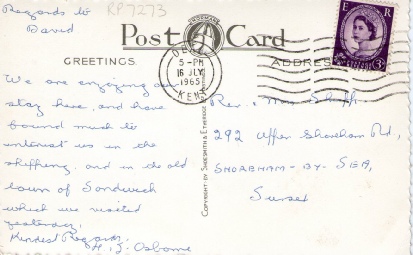 Regards to
David
RP7273
Post Card
GREETINGS.
ADDRESS
5-PM
16 JLY
1965
KENT
E R
3D
We are enjoying our
stay here, and have
found much to
interest us in the
shipping. and in the old
town of Sandwich
which we visited
yesterday.
Kindest Regards,
H. J. Osborne
COPYRIGHT BY SHOESMITH & ETHERIDGE
Rev. Mrs
292 Upper Shoreham Rd.,
SHOREHAM-BY-SEA,
Sussex